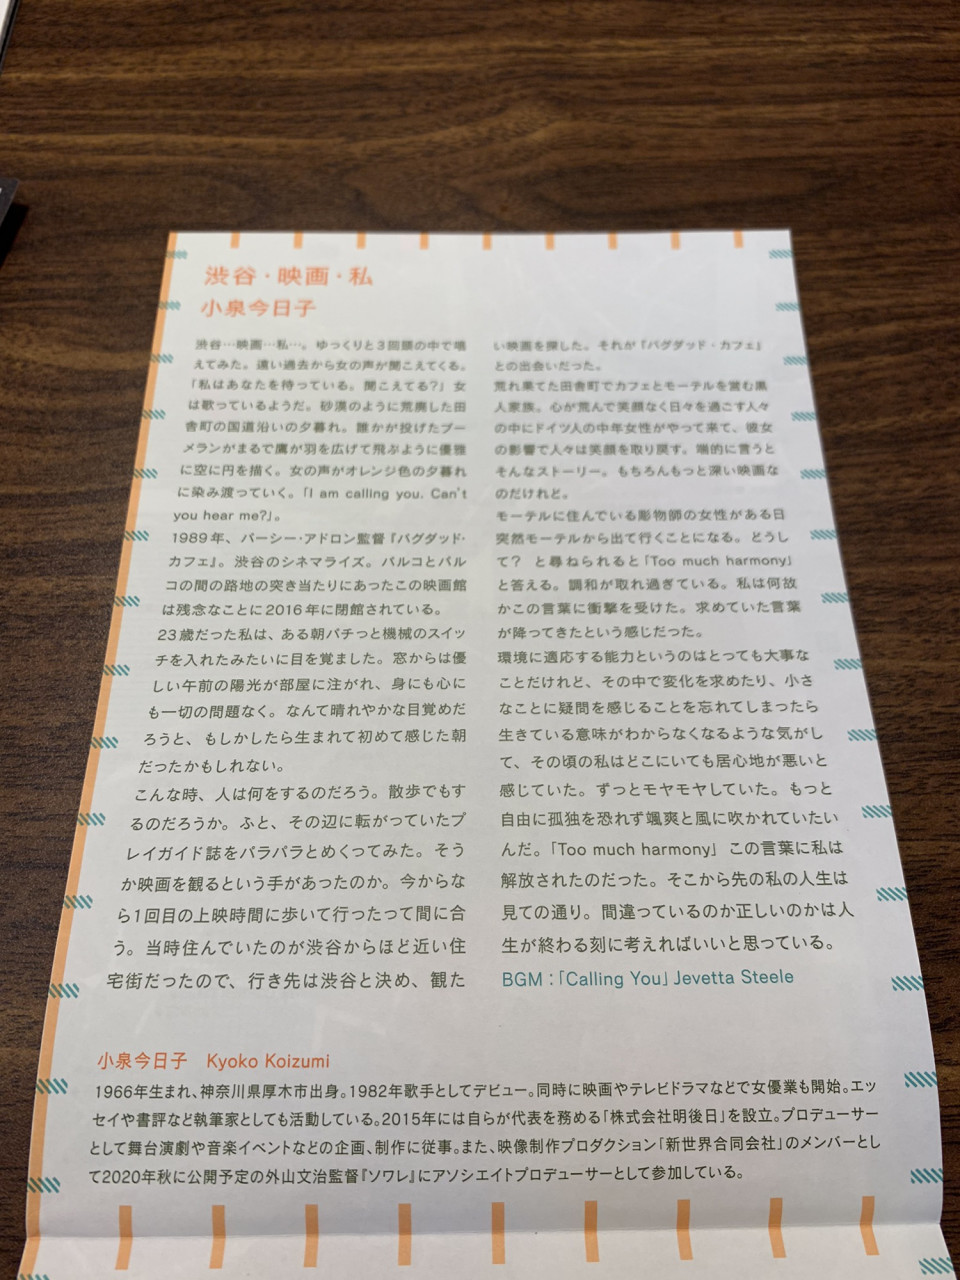 渋谷・映画・私
小泉今日子
渋谷…映画…私…。ゆっくりと3回頭の中で唱
えてみた。遠い過去から女の声が聞こえてくる。
「私はあなたを待っている。聞こえてる?」女
は歌っているようだ。砂漠のように荒廃した田
舎町の国道沿いの夕暮れ。誰かが投げたブー
メランがまるで鷹が羽を広げて飛ぶように優雅
に空に円を描く。女の声がオレンジ色の夕暮れ
に染み渡っていく。「I am calling you. Can't
you hear me?」。
1989年、パーシー・アドロン監督『バグダッド・
カフェ』。渋谷のシネマライズ。パルコとパル
コの間の路地の突き当たりにあったこの映画館
は残念なことに2016年に閉館されている。
23歳だった私は、ある朝パチっと機械のスイッ
チを入れたみたいに目を覚ました。窓からは優
しい午前の陽光が部屋に注がれ、身にも心に
も一切の問題なく。なんて晴れやかな目覚めだ
ろうと、もしかしたら生まれて初めて感じた朝
だったかもしれない。
こんな時、人は何をするのだろう。散歩でもす
るのだろうか。ふと、その辺に転がっていたプ
レイガイド誌をパラパラとめくってみた。そう
か映画を観るという手があったのか。今からな
ら1回目の上映時間に歩いて行ったって間に合
う。当時住んでいたのが渋谷からほど近い住
宅街だったので、行き先は渋谷と決め、観た
い映画を探した。それが『バグダッド・カフェ』
との出会いだった。
荒れ果てた田舎町でカフェとモーテルを営む黒
人家族。心が荒んで笑顔なく日々を過ごす人々
の中にドイツ人の中年女性がやって来て、彼女
の影響で人々は笑顔を取り戻す。端的に言うと
そんなストーリー。もちろんもっと深い映画な
のだけれど。
モーテルに住んでいる彫物師の女性がある日
突然モーテルから出て行くことになる。どうし
て? と尋ねられると「Too much harmony」
と答える。調和が取れ過ぎている。私は何故
かこの言葉に衝撃を受けた。求めていた言葉
が降ってきたという感じだった。
環境に適応する能力というのはとっても大事な
ことだけれど、その中で変化を求めたり、小さ
なことに疑問を感じることを忘れてしまったら
生きている意味がわからなくなるような気がし
て、その頃の私はどこにいても居心地が悪いと
感じていた。ずっとモヤモヤしていた。もっと
自由に孤独を恐れず颯爽と風に吹かれていたい
んだ。「Too much harmony」この言葉に私は
解放されたのだった。そこから先の私の人生は
見ての通り。間違っているのか正しいのかは人
生が終わる刻に考えればいいと思っている。
BGM:「Calling You」Jevetta Steele
小泉今日子 Kyoko Koizumi
1966年生まれ、神奈川県厚木市出身。1982年歌手としてデビュー。同時に映画やテレビドラマなどで女優業も開始。エッ
セイや書評など執筆家としても活動している。2015年には自らが代表を務める「株式会社明後日」を設立。プロデューサー
として舞台演劇や音楽イベントなどの企画、制作に従事。また、映像制作プロダクション「新世界合同会社」のメンバーとし
て2020年秋に公開予定の外山文治監督『ソワレ』にアソシエイトプロデューサーとして参加している。